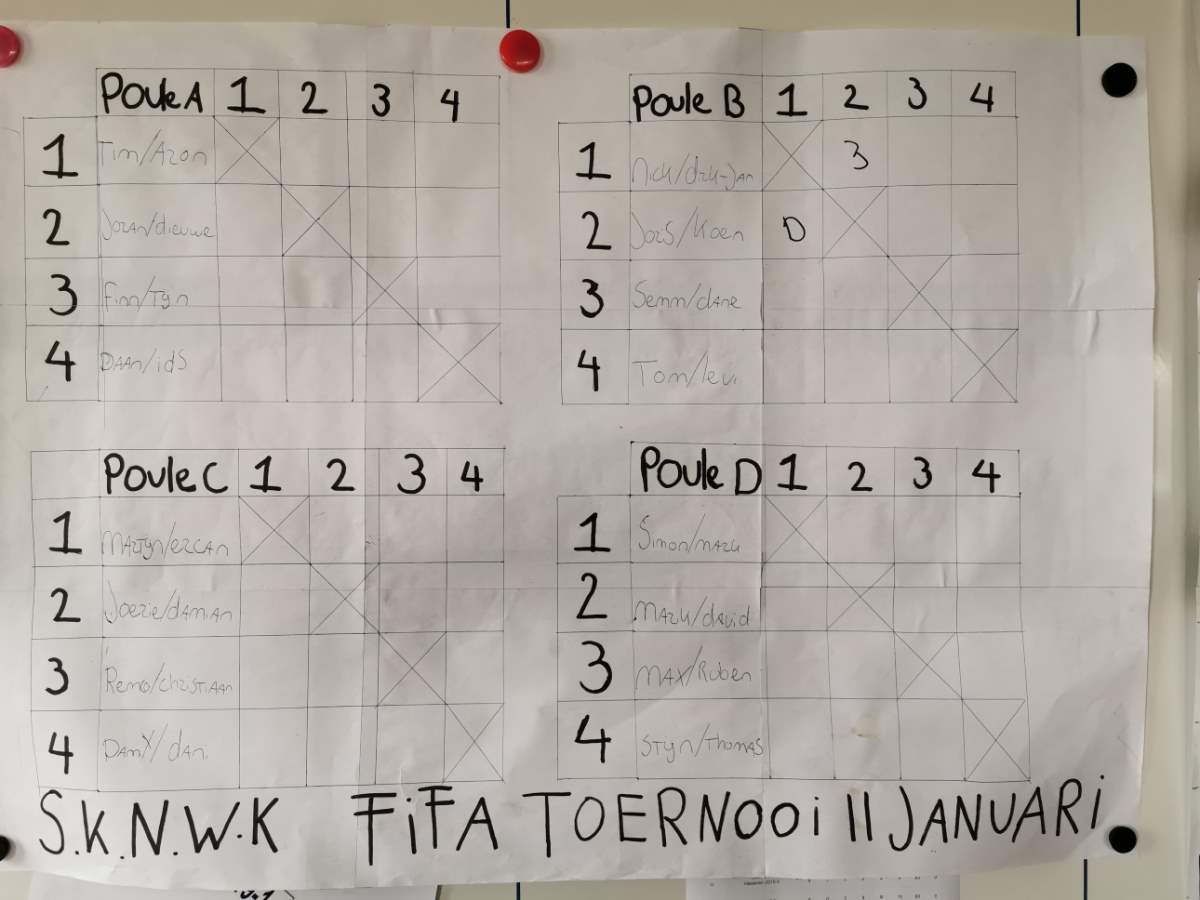 Poule A 1 2 3 4
1 Tim/Azon
2 Joran/dieuwe
3 Finn/Tyn
4 DAAn/ids
Poule B 1 2 3 4
1 Nick/dirk-Jan 3
2 Jors/Koen 0
3 Semm/dAne
4 Tom/levi
Poule C 1 2 3 4
1 MARTyn/ERCAn
2 Joerie/dAmiAn
3 Remo/ChRiSTiAAn
4 DAnY/dAn
Poule D 1 2 3 4
1 Simon/mARk
2 MARk/david
3 MAX/Ruben
4 STyn/ThomAS
S.K.N.W.K FiFA TOERNOOi 11 JANUARi